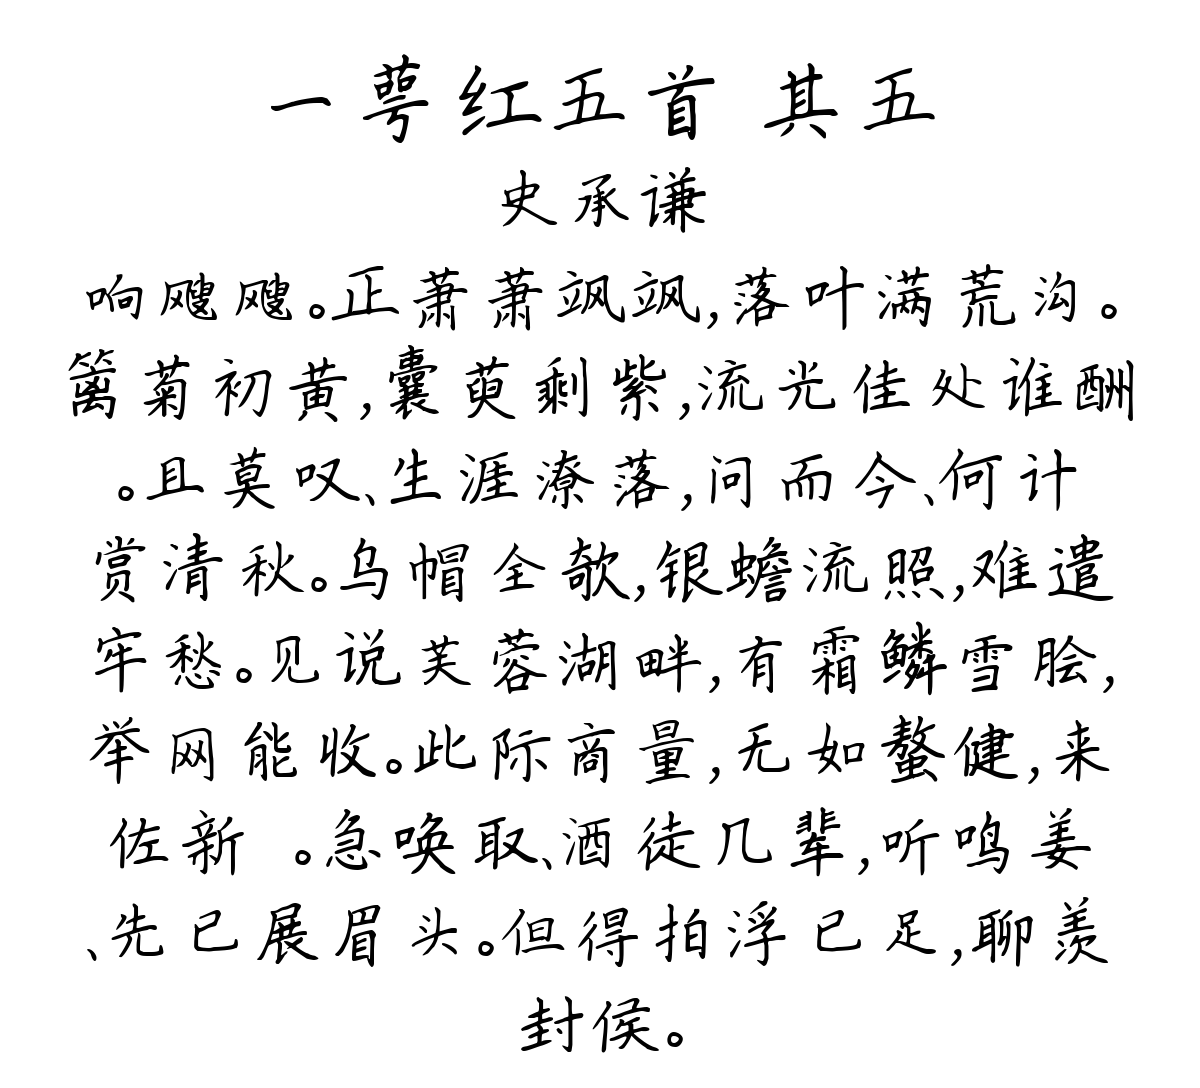 一萼红五首 其五
史承谦
响飕飕。正萧萧飒飒,落叶满荒沟。
篱菊初黄,囊萸剩紫,流光佳处谁酬
。且莫叹、生涯潦落,问而今、何计
赏清秋。乌帽全欹,银蟾流照,难遣
牢愁。见说芙蓉湖畔,有霜鳞雪脍,
举网能收。此际商量,无如螯健,来
佐新 。急唤取、酒徒几辈,听鸣姜
、先已展眉头。但得拍浮已足,聊羡
封侯。